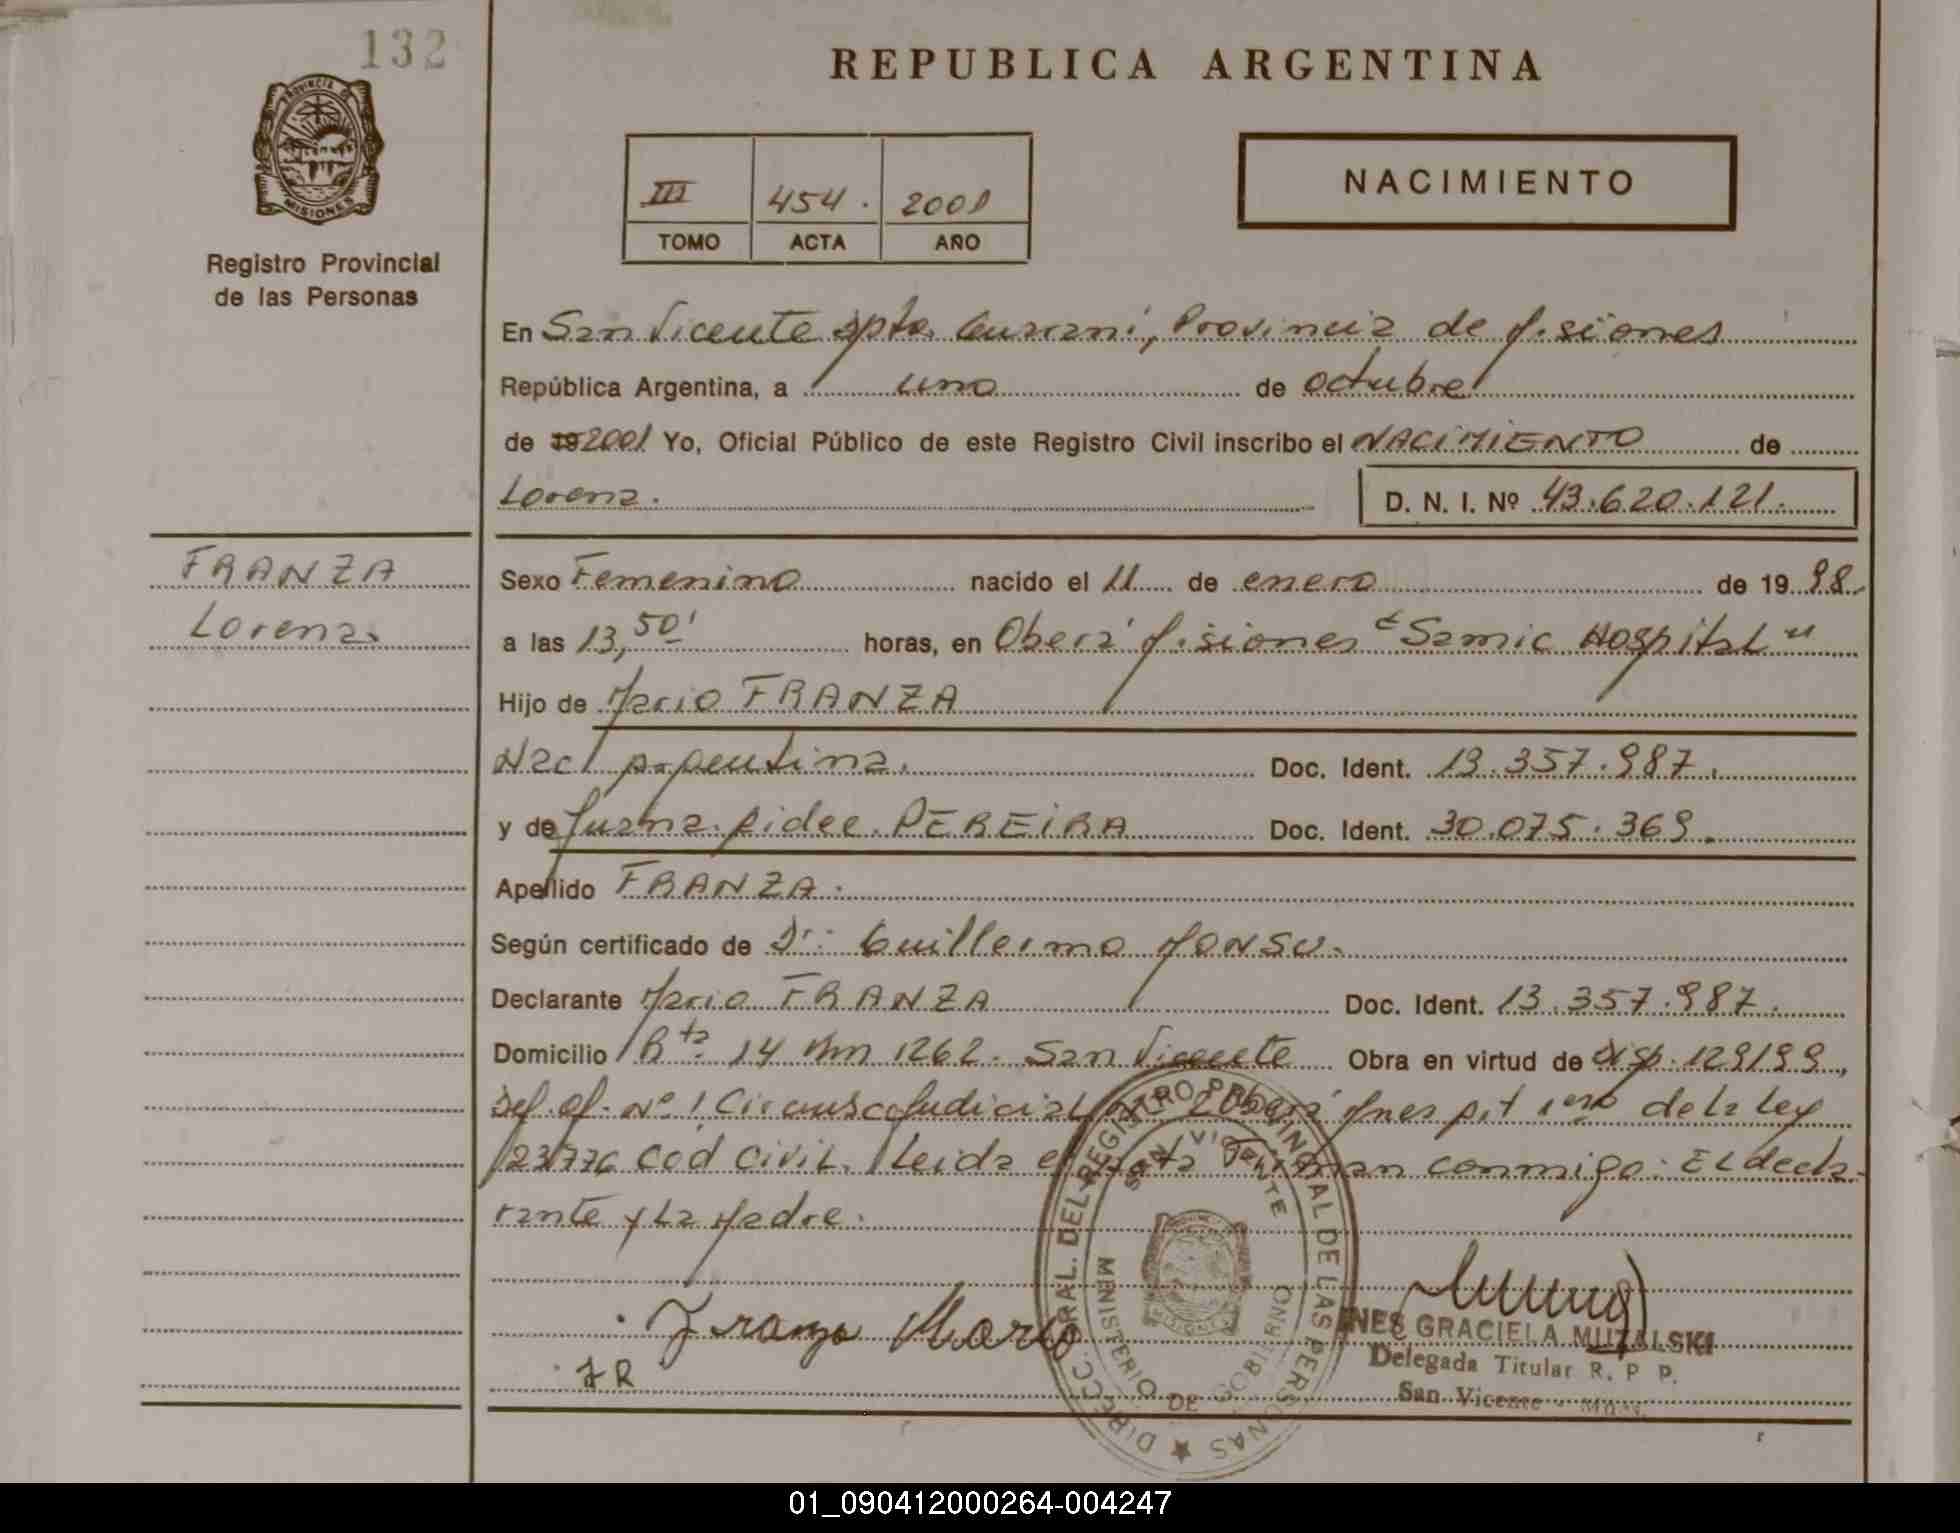 132
REPUBLICA ARGENTINA
PROVINCIA DE
MISIONES
Registro Provincial
de las Personas
III 454. 2001
TOMO ACTA AÑO
NACIMIENTO
En San Vicente Dpto. Guarani, Provincia de Misiones
República Argentina, a uno de octubre
de 19 2001 Yo, Oficial Público de este Registro Civil inscribo el NACIMIENTO de
Lorena. D. N. I. Nº 43.620.121.
FRANZA
Lorena.
Sexo Femenino nacido el 11 de enero de 19 98.
a las 13,50' horas, en Oberá Misiones "Samic Hospital"
Hijo de Mario FRANZA
Nac. Argentina. Doc. Ident. 13.357.987.
y de Juana Eidee PEREIRA Doc. Ident. 30.075.369.
Apellido FRANZA.
Según certificado de Dr: Guillermo
Declarante Mario FRANZA Doc. Ident. 13.357.987.
Domicilio Rta 14 Km 1262. San Vicente Obra en virtud de Disp. 129/99,
Def. Of. Nº 1 Circunsc. Judicial Oberá Mnes de la Ley
23776 Cod Civil. Leida el acta Firman conmigo: El decla-
rante y La Madre.
Franza Mario
FR
DIRECC. GRAL. DEL REGISTRO PROVINCIAL DE LAS PERSONAS
SAN VICENTE
MINISTERIO DE GOBIERNO
INES GRACIELA MUZALSKI
Delegada Titular R. P. P.
San Vicente - Mnes.
01_090412000264-004247